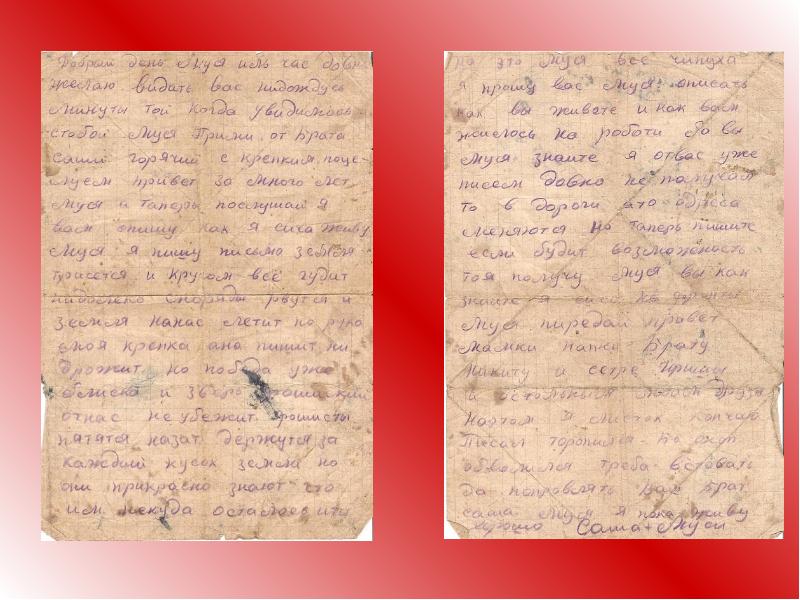 Добрый день Муся иль час давно
желаю видать вас недождусь
минуты той когда увидимось
стобой Муся Прими от брата
саши горячий с крепким поце-
луем привет за много лет
Муся и таперь послушай я
вам опишу как я сича живу
Муся я пишу письмо земля
трисется и кругом всё гудит
нидолеко снаряды рвутся и
земля нанас летит но рука
моя крепка ана пишит ни
дрожит но победа уже
облиско и
отнас не убежит фрошисты
пятятя назат держутся за
каждый кусок земли но
они прикрасно знают что
им некуда осталось ити
на это Муся все чипуха
я прошу вас Муся описать
как вы живете и как вам
жилось на роботи бо вы
Муся знаите я отвас уже
писем давно не получал
то в дороги ато
меняются но таперь пишите
если будит возможность
то я получу Муся вы как
знаите я
Муся пиредай привет
мамки папки брату
Никиту и сестре
и остальным
Наэтом я листок кончаю
Писать торопился
обволился треба вставать
да поправлять Ваш брат
саша Муся я пока живу
хорошо Саша + Муси